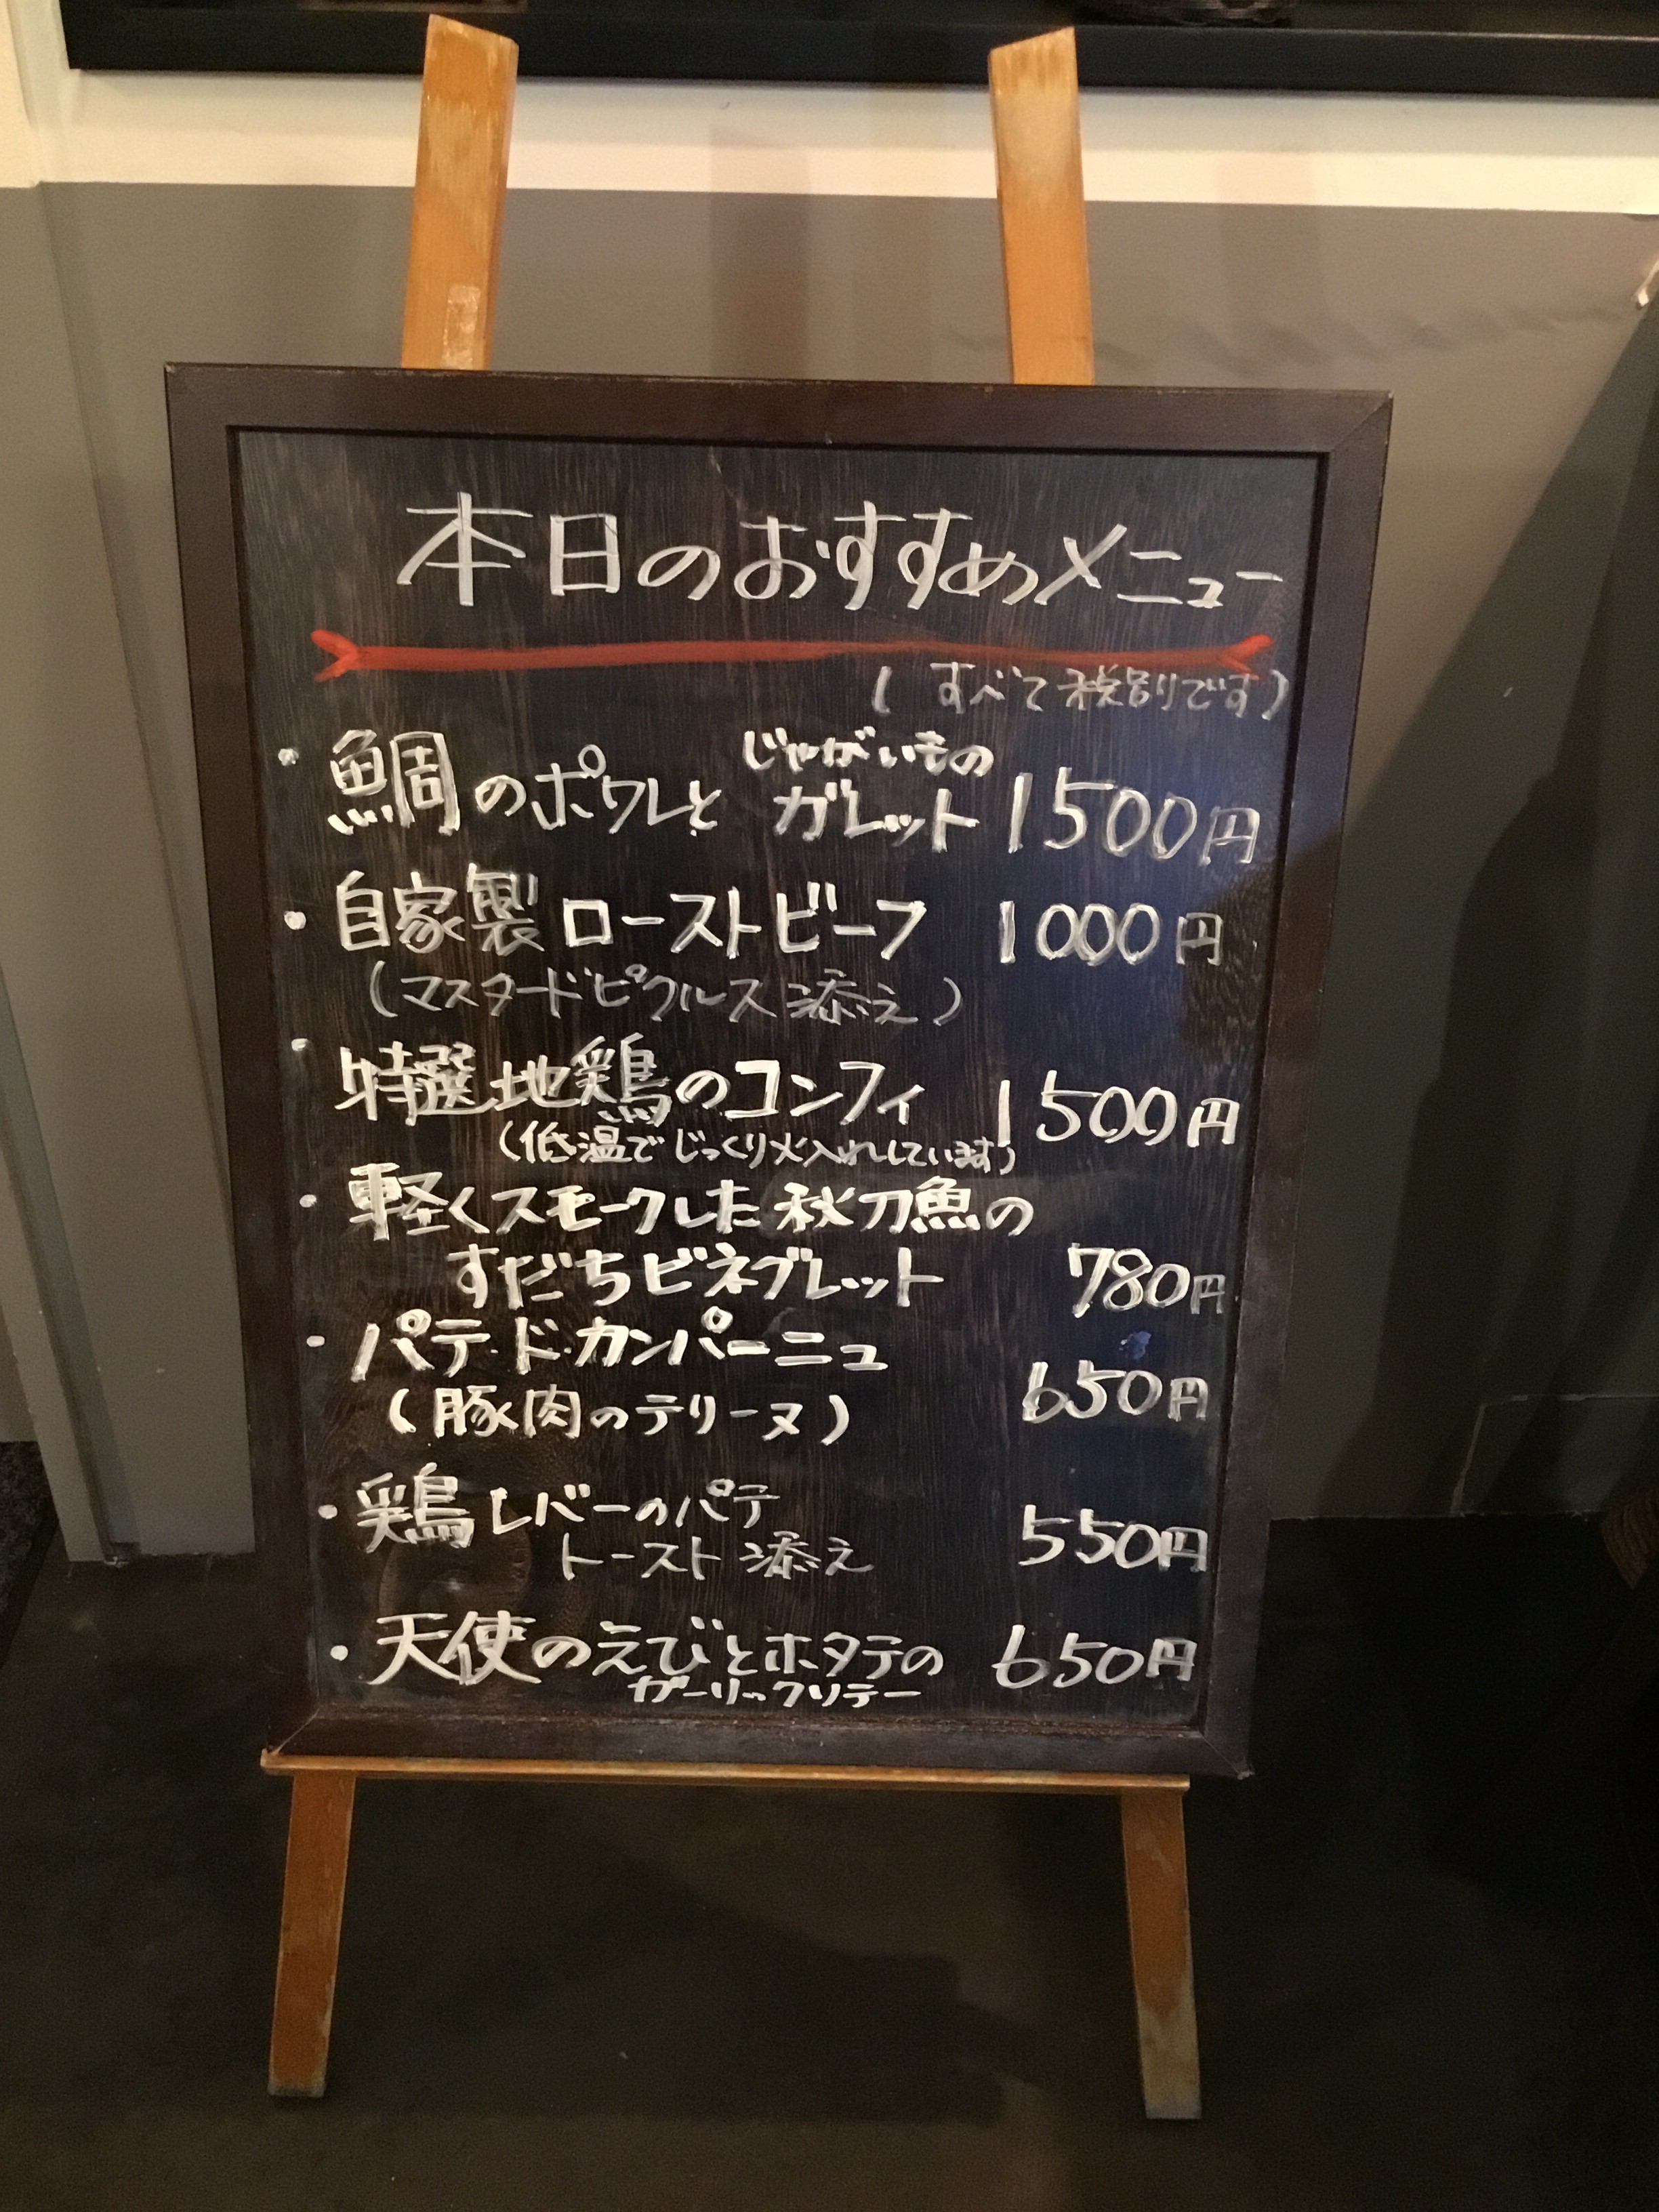 本日のおすすめメニュー
(すべて税別りです)
・鯛のポワレと じゃがいもの
ガレット 1500円
・自家製ローストビーフ 1000円
(マスタードピクルス添え)
・特選地鶏のコンフィ 1500円
(低温でじっくり火入れしています)
・軽くスモークした秋刀魚の
すだちビネグレット 780円
・パテ・ド・カンパーニュ
650円
(豚肉のテリーヌ)
・鶏レバーのパテ
トースト添え 550円
・天使のえびとホタテの 650円
ガーリックソテー